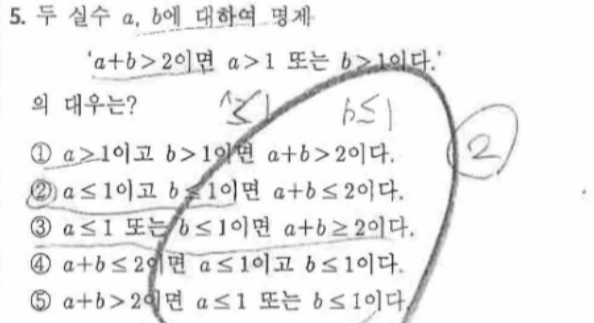 5. 두 실수 a, b에 대하여 명제
'a+b>2이면 a>1 또는 b>1이다.'
의 대우는?
≤1 b≤1
① a>1이고 b>1이면 a+b>2이다.
2
② a≤1이고 b≤1이면 a+b≤2이다.
③ a≤1 또는 b≤1이면 a+b≥2이다.
④ a+b≤2이면 a≤1이고 b≤1이다.
⑤ a+b>2이면 a≤1 또는 b≤1이다.